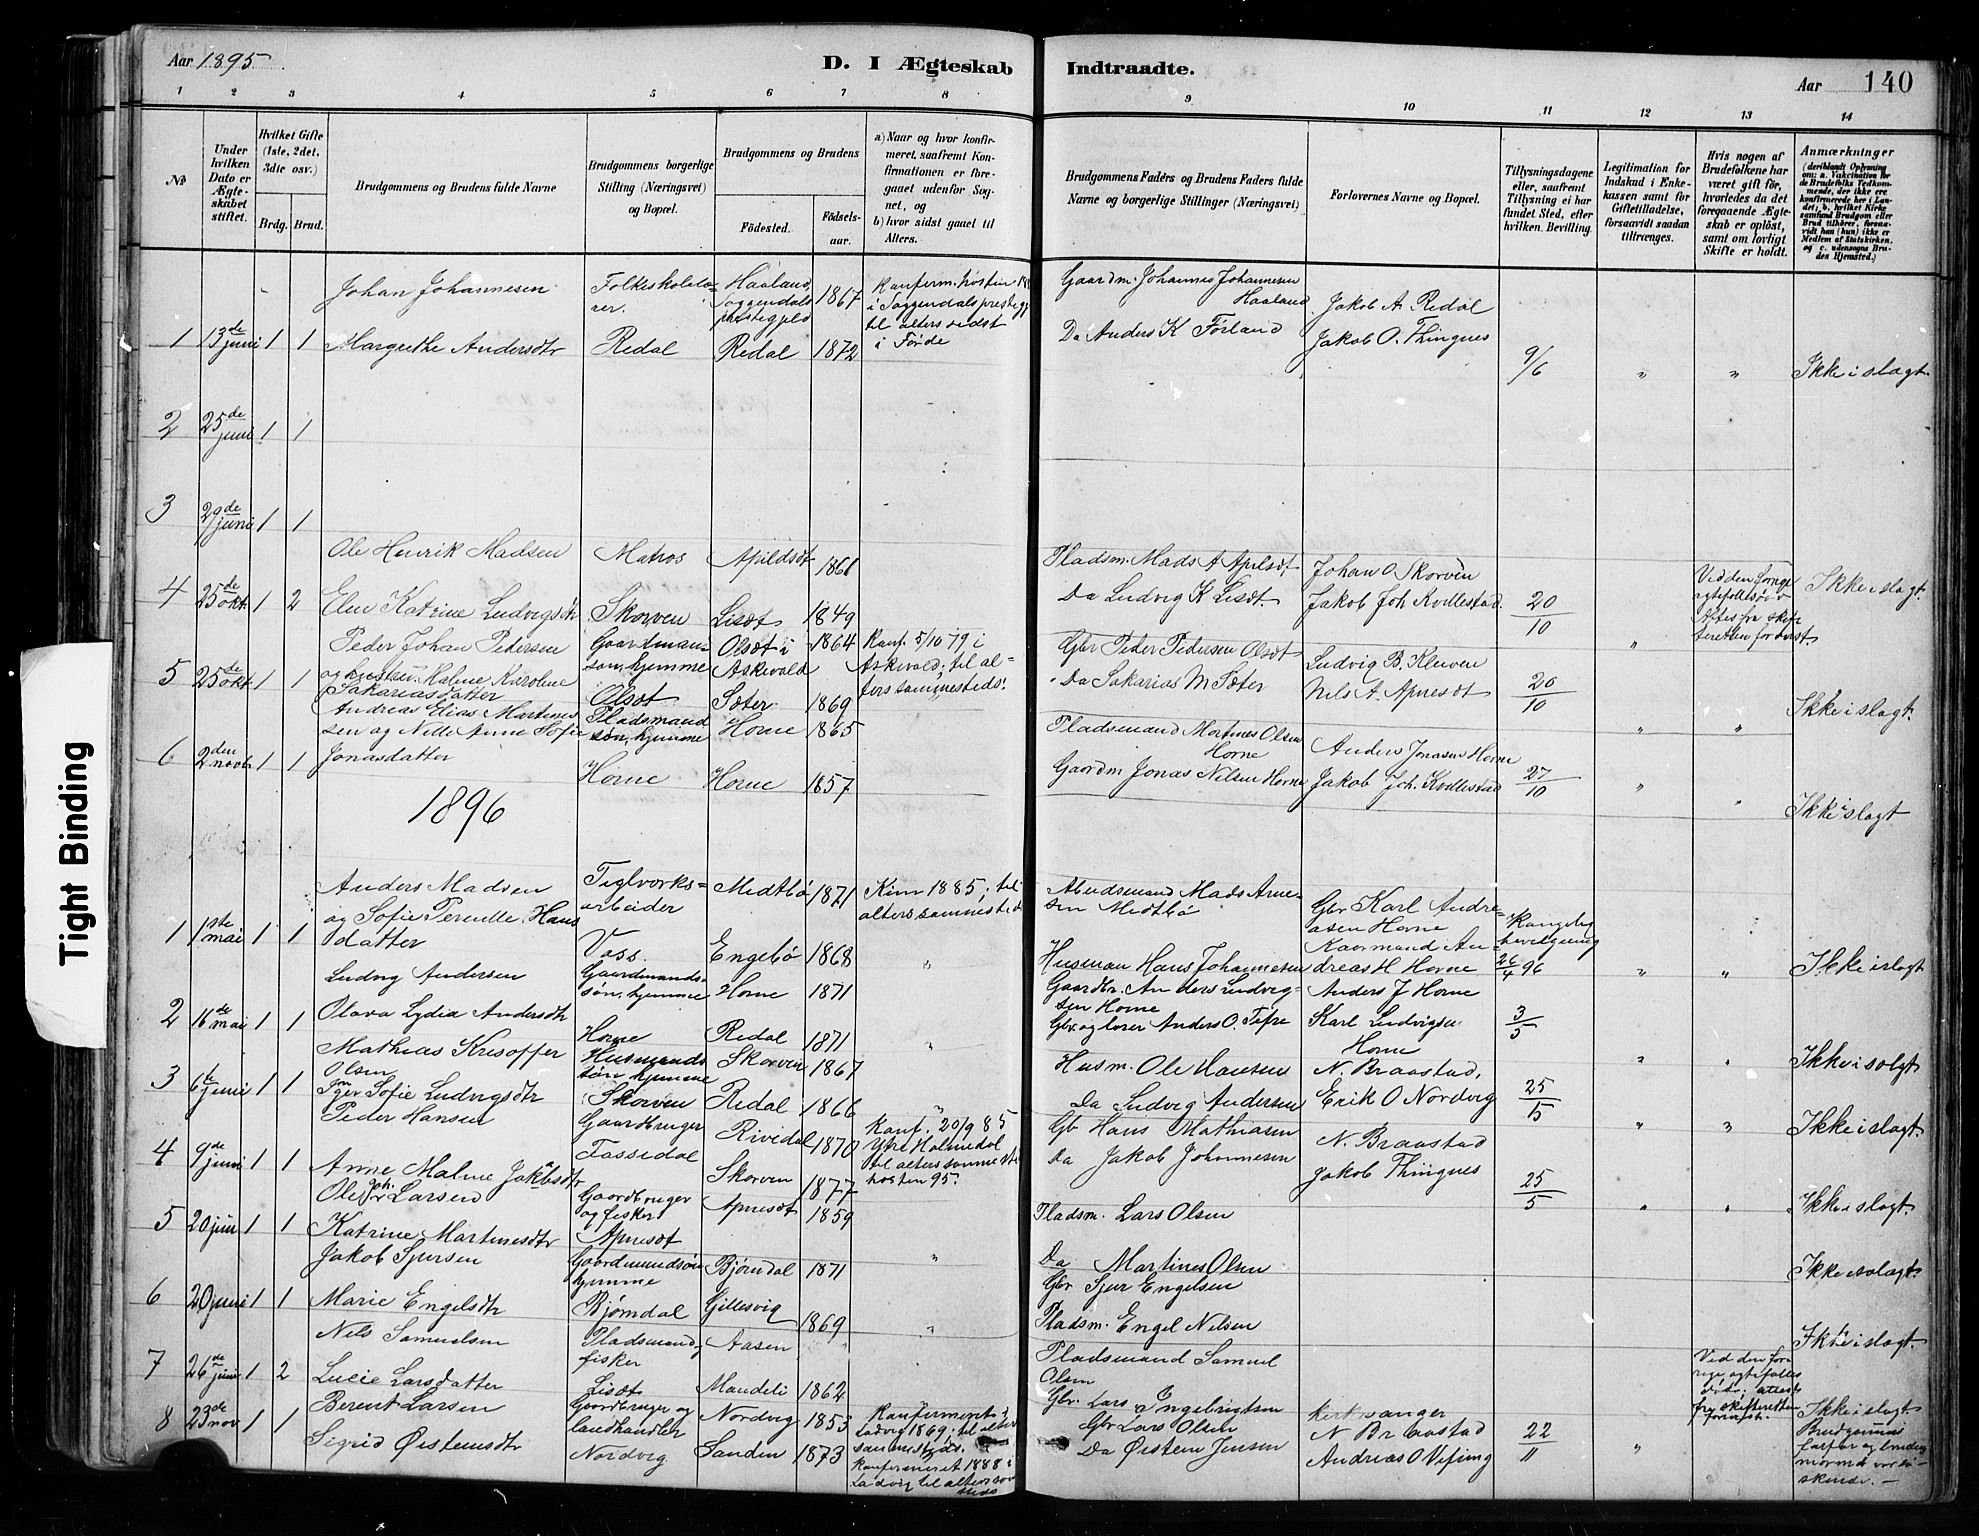 Aar 1895.
D. I Ægteskab Indtraadte.
Aar 140
1 2 3 4 5 6 7 8 9 10 11 12 13 14
№
Under hvilken Dato er Ægteskabet stiftet.
Hvilket Gifte (1ste, 2det, 3die osv.)
Brdg. Brud.
Brudgommens og Brudens fulde Navne
Brudgommens borgerlige Stilling (Næringsvei) og Bopæl.
Brudgommens og Brudens
Fødested.
Fødselsaar.
a) Naar og hvor konfirmeret, saafremt Konfirmationen er foregaaet udenfor Sognet, og
b) hvor sidst gaaet til Alters.
Brudgommens Faders og Brudens Faders fulde Navne og borgerlige Stillinger (Næringsvei)
Forlovernes Navne og Bopæl.
Tillysningsdagene eller, saafremt Tillysning ei har fundet Sted, efter hvilken Bevilling.
Legitimation for Indskud i Enkekassen samt for Giftetilladelse, forsaavidt saadan tiltrænges.
Hvis nogen af Brudefolkene har været gift før, hvorledes da det foregaaende Ægteskab er opløst, samt om lovligt Skifte er holdt.
Anmærkninger (deriblandt Oplysning om: a. Vakcination for de Brudefolks Vedkommende, der ikke ere konfirmerede her i Landet; b. hvilket Kirkesamfund Brudgom eller Brud tilhører, forsaavidt han (hun) ikke er Medlem af Statskirken, og c. udensogns Brudes Hjemsted.)
Johan Johannesen Folkeskolelærer. Haaland, Soggendals prestegjeld 1867 Konferm. høsten i Soggendals prestegj. til alters sidst i Førde Gaardm. Johannes Johannesen Haaland Jakob A. Redal
1 13de juni 1 1 Margrethe Andersdtr Redal Redal 1872 Da Anders K Førland Jakob O. Thingnes 9/6 " " Ikke i slagt.
2 25de juni 1 1
3 29de juni 1 1
Ole Henrik Madsen Matros Apildsdt 1861 Pladsm. Mads A Aplsdt Johan O Skorven
4 25de okt. 1 2 Elen Katrine Ludvigsdtr Skorven Lisdt 1849 Da Ludvig K Lisdt. Jakob Joh Kvillestad 20/10 " Ved den forrige ægtefælles død. Attest fra skifteretten forevist Ikke i slagt.
Peder Johan Pedersen Gaardmandsøn, hjemme Olsdt i Askevold 1864 Konf. 5/10 79, i Askevold; til alters sammesteds. Gbr Peder Pedersen Olsdt Ludvig B. Kleven
5 25de okt 1 1 Malene Karoline Sakariasdatter Olsdt Sæter 1869 Da Sakarias M Sæter Nils A. Apnesdt 20/10 " " Ikke i slagt.
Andreas Elias Martinessen og Nille Anne Sofie Jonasdatter Pladsmandsøn, hjemme Horne 1865 Pladsmand Martines Olsen Horne Anders Jonasen Horne
6 2den novb 1 1 Horne Horne 1857 Gaardm Jonas Nilsen Horne Jakob Joh. Kvillestad 27/10 " " Ikke i slagt
1896
Anders Madsen Teglværksarbeider Midtbø 1871 Kinn 1885; til alters sammested Mads Arnesen Midtbø Gbr Karl Andreasen Horne Kongelig bevilgning
1 1ste mai 1 1 og Sofie Pernille Hansdatter Voss. Engebø 1868 " Husman Hans Johannesen Kaarmand Andreas H Horne 26/4 96 " " Ikke i slagt
Ludvig Andersen Gaardmandssøn, hjemme Horne 1871 Gaardbr. Anders Ludvigsen Horne Anders J Horne
2 16de mai 1 1 Olava Lydia Andersdtr Horne Redal 1871 " Gbr og lærer Anders O. Tefre Karl Ludvigsen Horne 3/5 " " Ikke i solgt
Mathias Kristoffer Olsen Husmandssøn hjemme Skorven 1867 Husm. Ole Hansen N. Braastad,
3 6te juni 1 1 Inger Sofie Ludvigsdtr Skorven Redal 1866 " Da Ludvig Andersen Erik O Nordvig 25/5 " " Ikke i slagt.
Peder Hansen Gaardbruger Rivedal 1870 Konf. 20/9 85 Ytre Holmedal til alters sammested høsten 95. Gb Hans Mathiasen N. Braastad
4 9de juni 1 1 Anne Malene Jakobsdtr Fossedal Skorven 1877 Da Jakob Johannesen Jakob Thingnes 25/5 " " Ikke i slagt.
Ole Joh. Larsen Gaardbruger og fisker Apnesdt 1859 Pladsm. Lars Olsen
5 20 juni 1 1 Katrine Martinesdtr Apnesdt " Da Martines Olsen Ikke i slagt.
Jakob Sjursen Gaardmandsøn hjemme Bjørndal 1871 Gbr Sjur Engelsen
6 20 juni 1 1 Marie Engelsdtr Bjørndal Gillesvig 1869 " Pladsm. Engel Nilsen Ikke i slagt.
Nils Samuelsen Pladsmand, fisker Aasen Pladsmand Samuel Olsen
7 26de juni 1 2 Lucie Larsdatter Lisdt Mandeli 1862 Gbr. Lars Ingebrigtsen Ved den forrige ægtefælles død; attest fra skifteretten forevist.
Berent Larsen Gaardbruger og landhandler Nordvig 1853 Konfermeret i Ladvig 1869; til alters sammesteds. Gbr. Lars Olsen kirkesanger N Braastad
8 23de nov. 1 1 Sigrid Østensdtr Nordvig Sanden 1873 Konfermeret 1888 i Ladvig til alters sammesteds Da Østen Jensen Andreas O Vefring 22/11 " Ikke i slagt. Brudgommens farfar og brudens mormor var søskende. –
Tight Binding